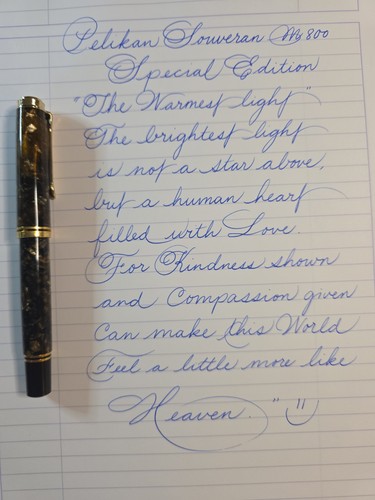 Pelikan Souveran M800
Special Edition
"The Warmest light"
The brightest light
is not a star above,
but a human heart
filled with Love.
For Kindness shown
and Compassion given
Can make this World
Feel a little more like
Heaven."